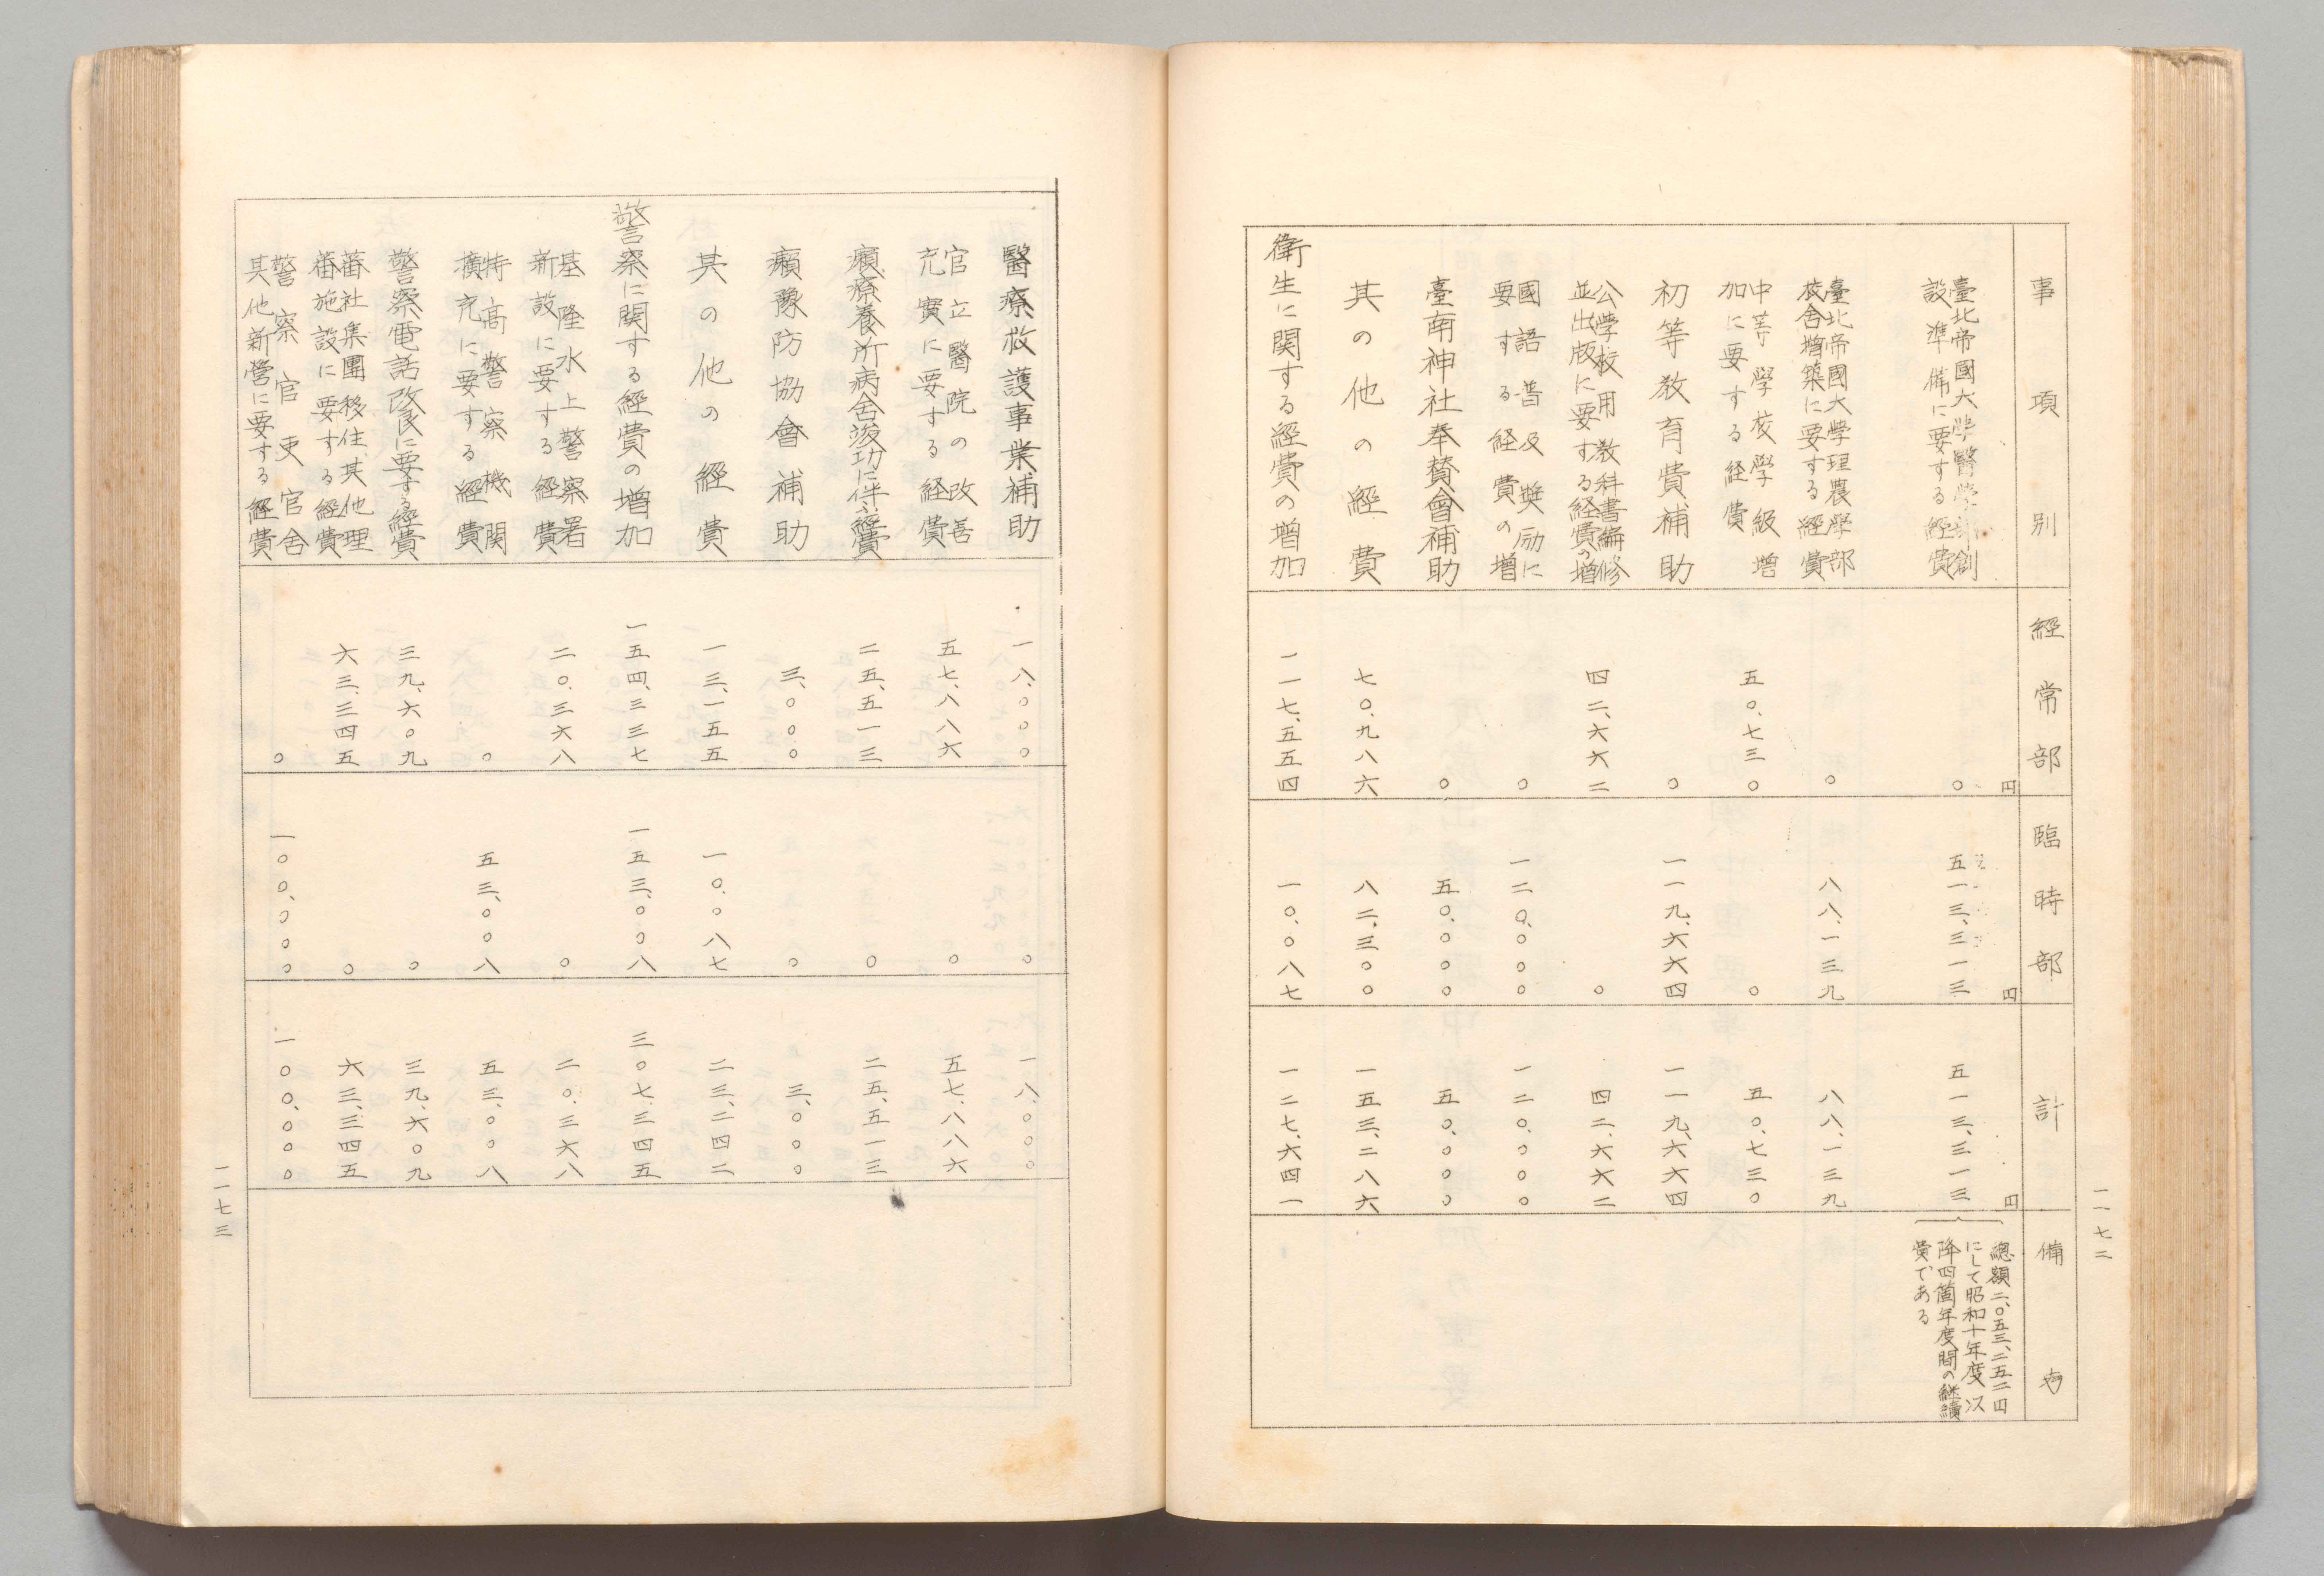 一一七二
事項別 經常部 臨時部 計 備考
円 円 円
臺北帝國大學醫學部創
設準備に要する經費 〇 五一三、三一三 五一三、三一三
總額二、〇五三、二五二円
にして昭和十年度以
降四箇年度間の継續
費である
臺北帝國大學理農學部
校舍増築に要する經費 〇 八八、一三九 八八、一三九
中等學校學級増
加に要する経費 五〇、七三〇 〇 五〇、七三〇
初等教育費補助 〇 一一九、六六四 一一九、六六四
公學校用教科書編修
並出版に要する経費の増 四二、六六二 〇 四二、六六二
國語普及奬励に
要する経費の増 〇 一二〇、〇〇〇 一二〇、〇〇〇
臺南神社奉賛會補助 〇 五〇、〇〇〇 五〇、〇〇〇
其の他の經費 七〇、九八六 八二、三〇〇 一五三、二八六
衛生に関する經費の増加 一一七、五五四 一〇、〇八七 一二七、六四一
醫療救護事業補助 一八、〇〇〇 〇 一八、〇〇〇
官立醫院の改善
充實に要する経費 五七、八八六 〇 五七、八八六
癩療養所病舍竣功に伴ふ經費 二五、五一三 〇 二五、五一三
癩豫防協會補助 三、〇〇〇 〇 三、〇〇〇
其の他の經費 一三、一五五 一〇、〇八七 二三、二四二
警察に関する經費の増加 一五四、三三七 一五三、〇〇八 三〇七、三四五
基隆水上警察署
新設に要する經費 二〇、三六八 〇 二〇、三六八
特高警察機関
擴充に要する經費 〇 五三、〇〇八 五三、〇〇八
警察電話改良に要する經費 三九、六〇九 〇 三九、六〇九
蕃社集團移住其他理
蕃施設に要する經費 六三、三四五 〇 六三、三四五
警察官吏官舍
其他新營に要する經費 〇 一〇〇、〇〇〇 一〇〇、〇〇〇
一一七三